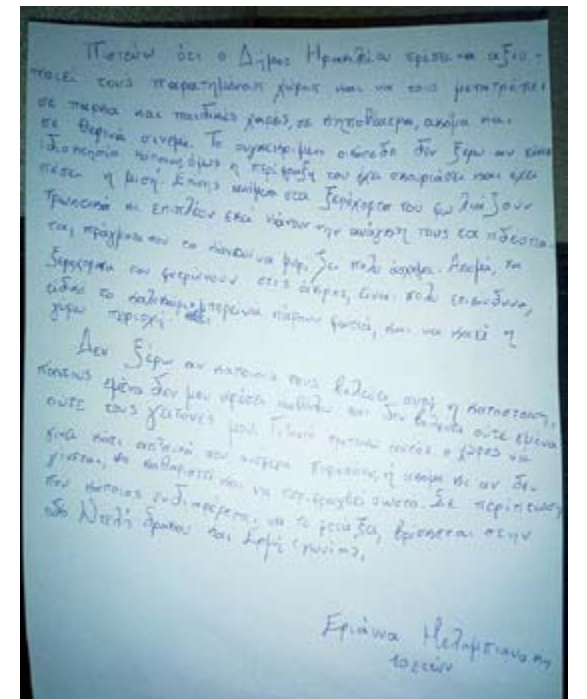 Πιστεύω ότι ο Δήμος Ηρακλείου πρέπει να αξιο-
ποιεί τους παρατημένους χώρους και να τους μετατρέπει
σε πάρκα και παιδικές χαρές, σε κηποθέατρα, ακόμα και
σε θερινά σινεμά. Το συγκεκριμένο οικόπεδο δεν ξέρω αν είναι
ιδιοκτησία κάποιου, όμως η περίφραξή του έχει σκουριάσει και έχει
πέσει η μισή. Επίσης ανάμεσα στα ξερόχορτα του φωλιάζουν
τρωκτικά κι επιπλέον εκεί κάνουν την ανάγκη τους τα αδέσπο-
τα, πράγματα που το κάνουν να μυρίζει πολύ άσχημα. Ακόμα, τα
ξερόχορτα που φυτρώνουν στις άκρες, είναι πολύ επικίνδυνα,
ειδικά το καλοκαίρι μπορεί να πάρουν φωτιά, και να καεί η
γύρω περιοχή.
Δεν ξέρω αν κάποιους τους βολεύει αυτή η κατάσταση,
πάντως εμένα δεν μου αρέσει καθόλου και δεν βολεύει ούτε εμένα
ούτε τους γείτονές μου. Γι'αυτό προτείνω αυτός ο χώρος να
γίνει κάτι από αυτά που ανέφερα παραπάνω, ή ακόμα κι αν δεν
γίνεται, να καθαριστεί και να περιφραχθεί σωστά. Σε περίπτωση
που κάποιος ενδιαφέρεται να το φτιάξει, βρίσκεται στην
οδό Ντελή δράκου και Σαμή (γωνία).
Εριάννα Μελαμπιανάκη
10 ετών